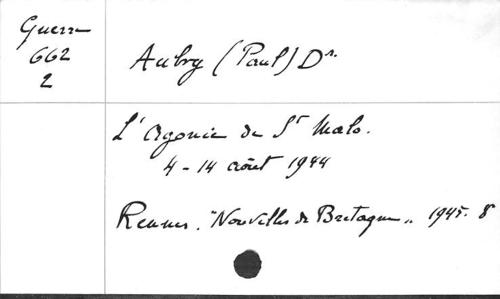 Guerre
662
2
Aubry (Paul) Dr.
L'Agonie de St Malo.
4-14 août 1944
Rennes. "Nouvelles de Bretagne" 1945. 8